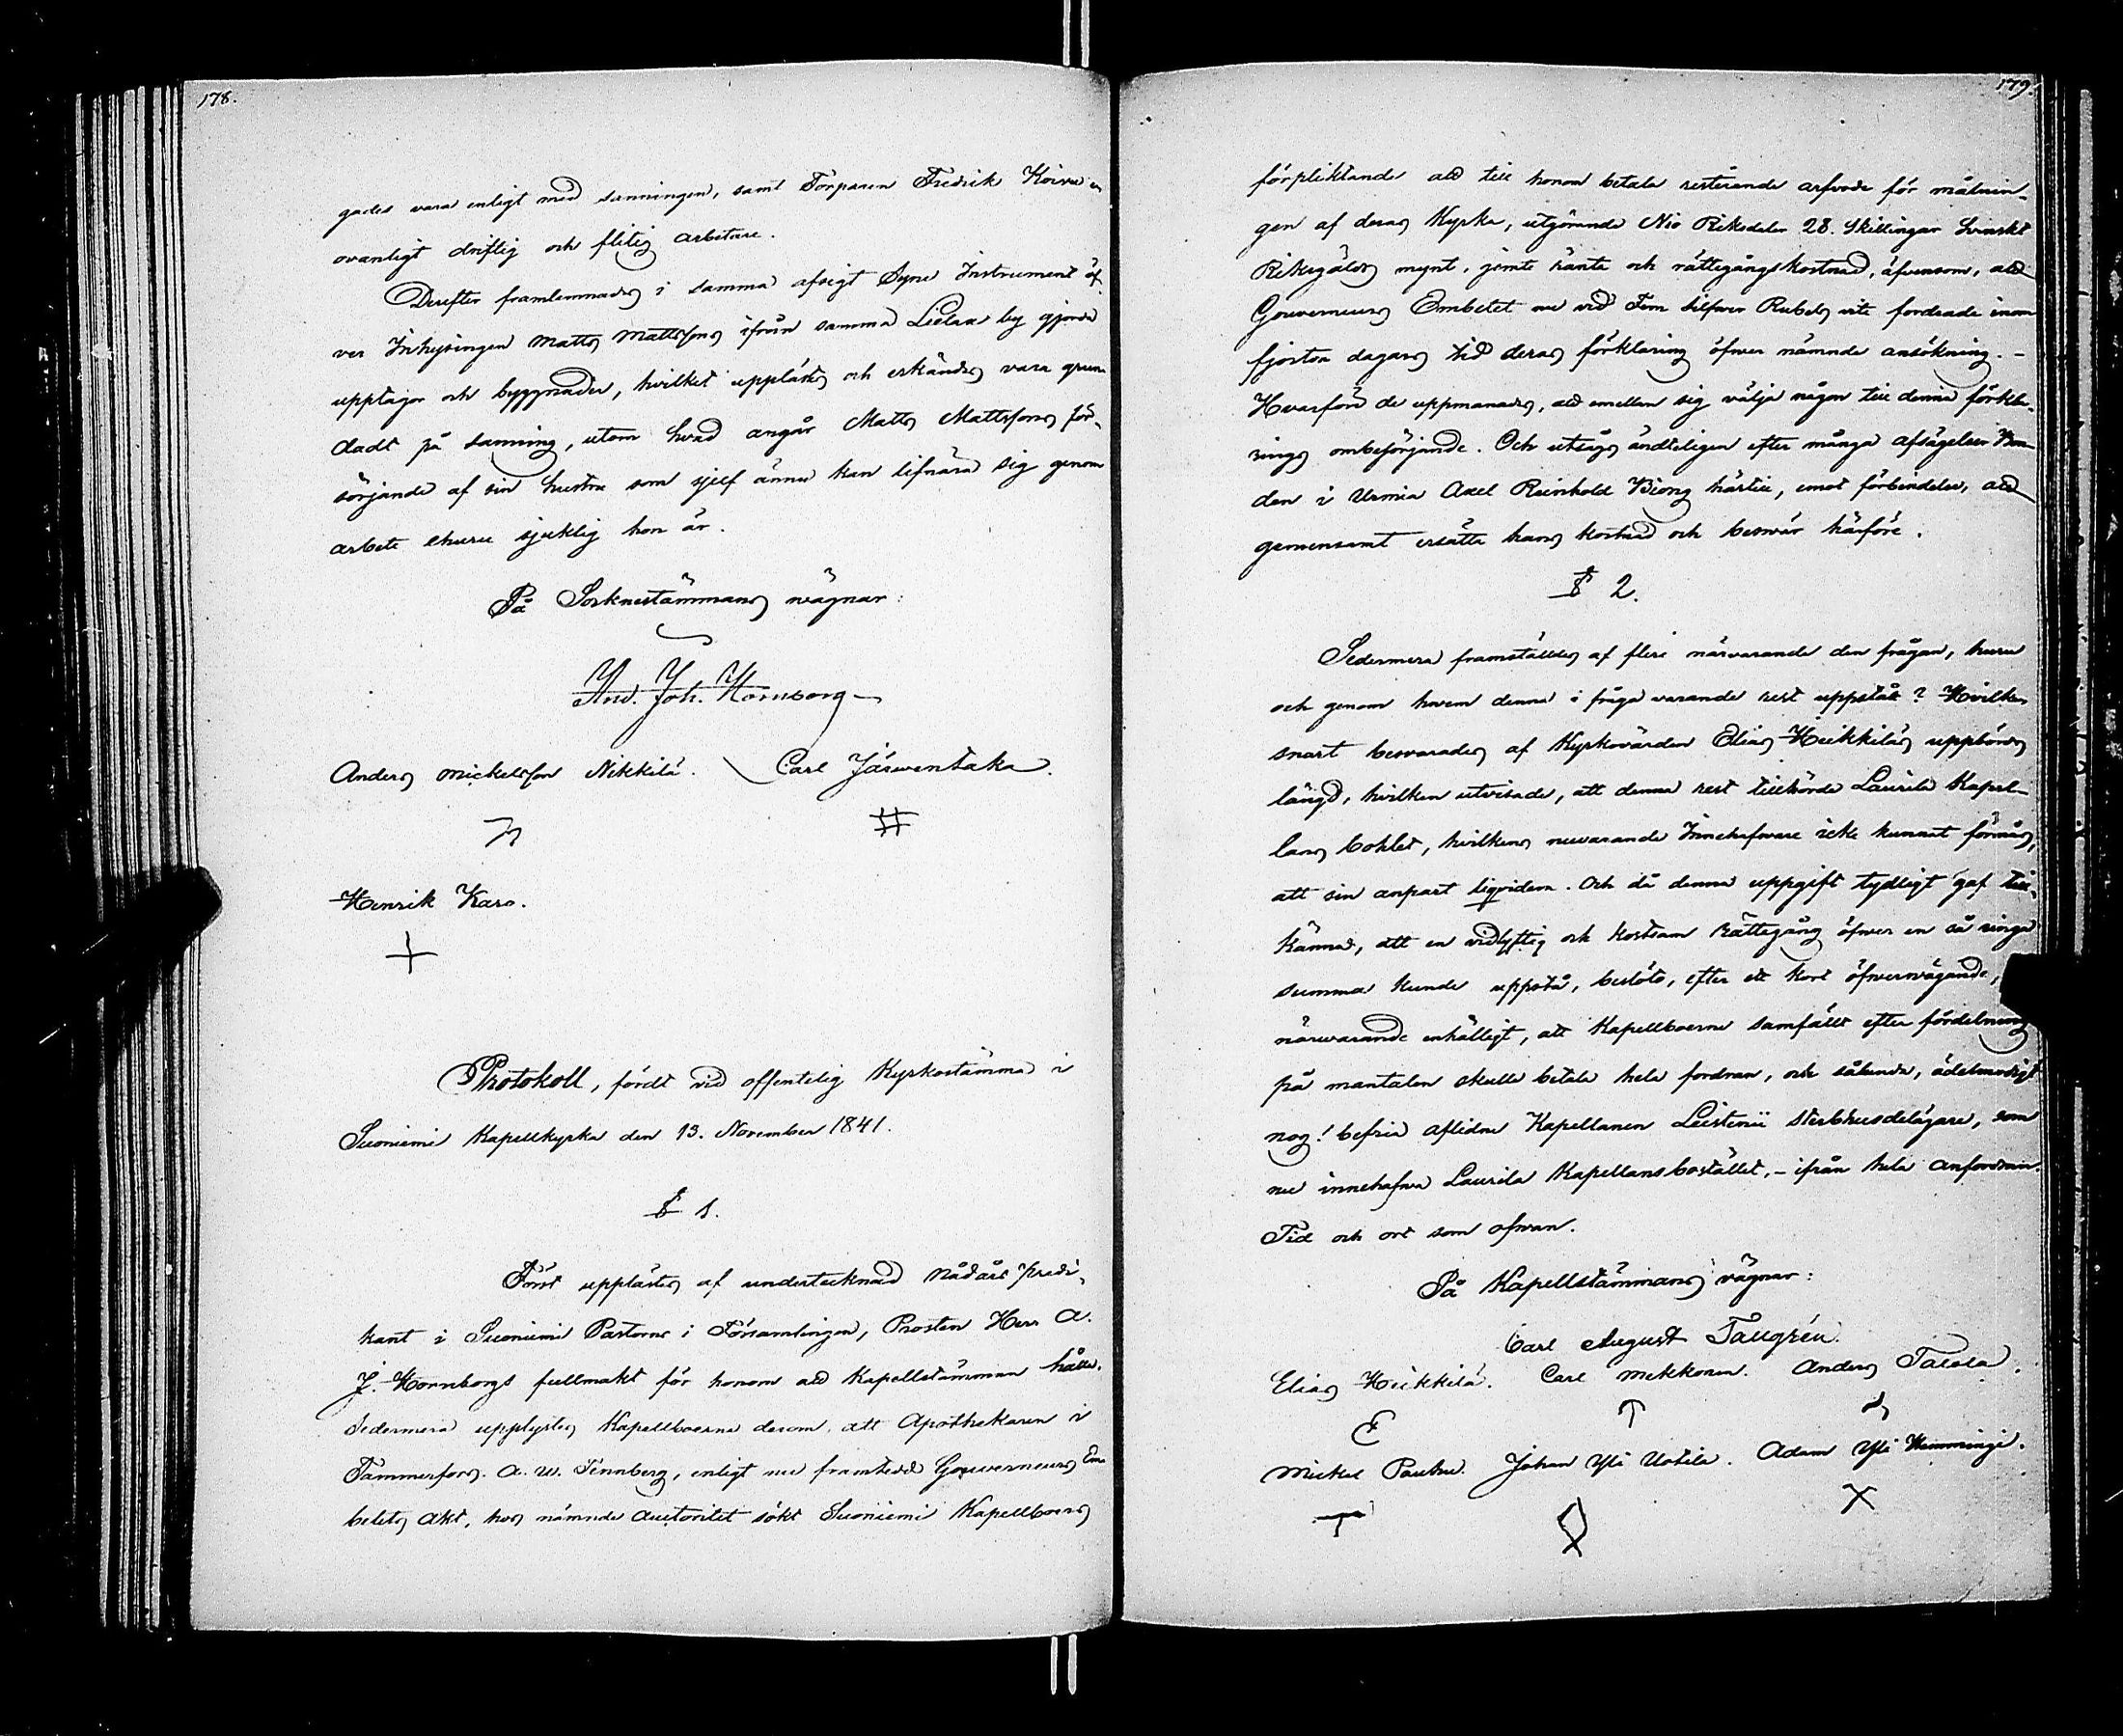 178.
gades vara enligt med sanningen, samt Torparen Fredrik Koivu en
ovanligt driftig och flitig arbetare.
Derefter framlemnades i samma afsigt Syne Instrument öf-
ver Inhysingen Matts Mattssons ifrån samma Lielax by gjorda
upptagor och byggnader, hvilket upplästes och erkändes vara grun-
dadt på sanning, utom hvad angår Matts Mattssons för-
sörjande af sin hustru som sjelf ännu kan lifnära sig genom
arbete ehuru sjuklig hon är.
På Socknestämmans vägnar:
And. Joh. Hornborg
Anders Mickelsson Nikkilä. Carl Järwentaka.
Henrik Karo.
Protokoll, fördt vid offentelig Kyrkostämma i
Suoniemi Kapellkyrka den 13. November 1841.
§ 1.
Först upplästes af undertecknad Nådårs predi-
kant i Suoniemi Pastorns i Församlingen, Prosten Herr A.
J. Hornborgs fullmakt för honom att Kapellstämman hålla.
Sedermera upplystes Kapellboerne derom, att Apothekaren i
Tammerfors. A. W. Tennberg, enligt nu framtedd Gouverneurs Em-
betets Akt, hos nämnde Auctoritet sökt Suoniemi Kapellboers
179.
förpliktande att till honom betala resterande arfvode för målnin-
gen af deras Kyrka, utgörande Nio Riksdaler 28. Skillingar Svenskt
Riksgälds mynt, jemte ränta och rättegångskostnad, äfvensom, att
Gouverneurs Embetet nu vid Fem Silfver Rubels vite fordrade inom
fjorton dagars tid deras förklaring öfver nämnde ansökning. -
Hvarföre de uppmanades, att emellan sig välja någon till denna förkla-
rings ombesörjande. Och utsågs ändteligen efter många afsägelser Bon-
den i Urmia Axel Reinhold Biong härtill, emot förbindelse, att
gemensamt ersätta hans kostnad och besvär härföre.
§ 2.
Sedermera framställdes af flere närvarande den frågan, huru
och genom hvem denna i fråga varande rest uppstått? Hvilken
snart besvarades af Kyrkovärden Elias Heikkiläs uppbörds
längd, hvilken utvisade, att denna rest tillhörde Laurila Kapel-
lans bohlet, hvilkens nuvarande Innehafvare icke kunnat förmås,
att sin anpart liqvidera. Och då denna uppgift tydligt gaf till-
känna, att en vidlyftig och kostsam rättegång öfver en så ringa
summa kunde uppstå, beslöts, efter ett kort öfvervägande,
närvarande enhälligt, att Kapellboerne samfällt efter fördelning
på mantalen skulle betala hela fordran, och sålunda, ädelmodigt
nog! befria aflidne Kapellanen Leistenii Sterbhusdelägare, som
nu innehafva Laurila Kapellansbostället, - ifrån hela anfordran.
Tid och ort som ofvan.
På Kapellstämmans vägnar:
Carl August Taugrén.
Elias Heikkilä. Carl Mekkonen. Anders Talola.
Mickel Pauhu. Johan Yli Uotila. Adam Yli Hemmingi.